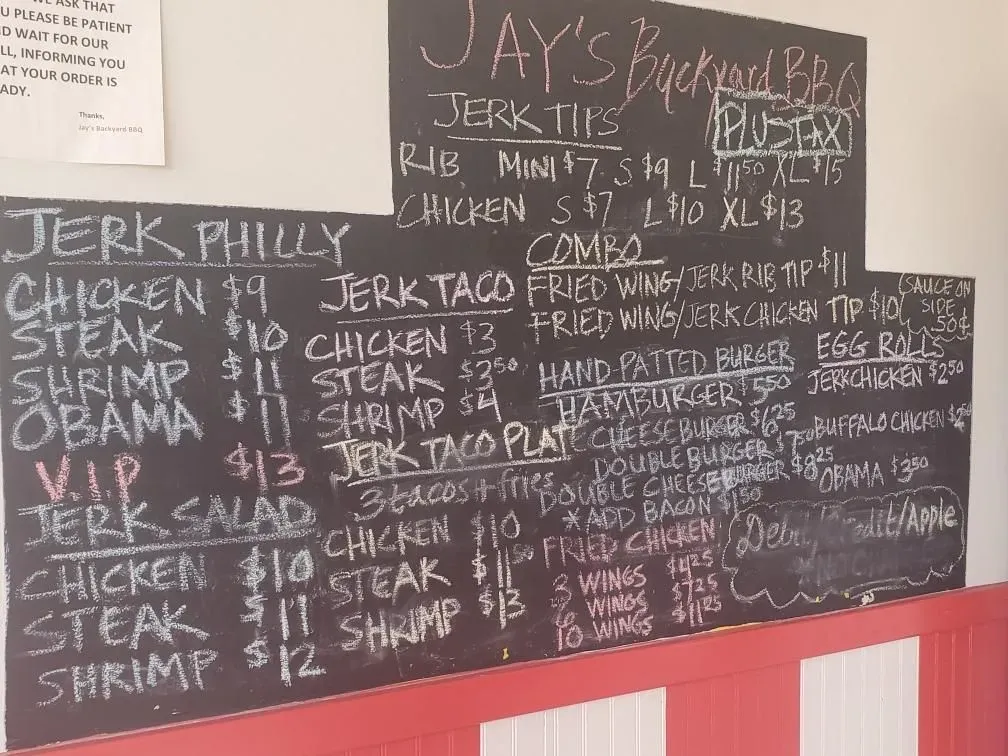 WE ASK THAT
U PLEASE BE PATIENT
D WAIT FOR OUR
LL, INFORMING YOU
AT YOUR ORDER IS
ADY.
Thanks,
Jay's Backyard BBQ
JAY'S Backyard BBQ
JERK TIPS
PLUS TAX
RIB MINI $7 S $9 L $11.50 XL $15
CHICKEN S $7 L $10 XL $13
COMBO
FRIED WING/JERK RIB TIP $11
FRIED WING/JERK CHICKEN TIP $10
(SAUCE ON
SIDE
.50¢
JERK PHILLY
CHICKEN $9
STEAK $10
SHRIMP $11
OBAMA $11
V.I.P $13
JERK SALAD
CHICKEN $10
STEAK $11
SHRIMP $12
JERK TACO
CHICKEN $3
STEAK $3.50
SHRIMP $4
JERK TACO PLATE
3 tacos + fries
CHICKEN $10
STEAK $11
SHRIMP $13
HAND-PATTED BURGER
HAMBURGER $5.50
CHEESEBURGER $6.25
DOUBLE BURGER
DOUBLE CHEESEBURGER $8.25
*ADD BACON $1.50
FRIED CHICKEN
3 WINGS $4.25
6 WINGS $7.25
10 WINGS $11.25
EGG ROLLS
JERK CHICKEN $2.50
BUFFALO CHICKEN
OBAMA $3.50
Debit/Credit/Apple